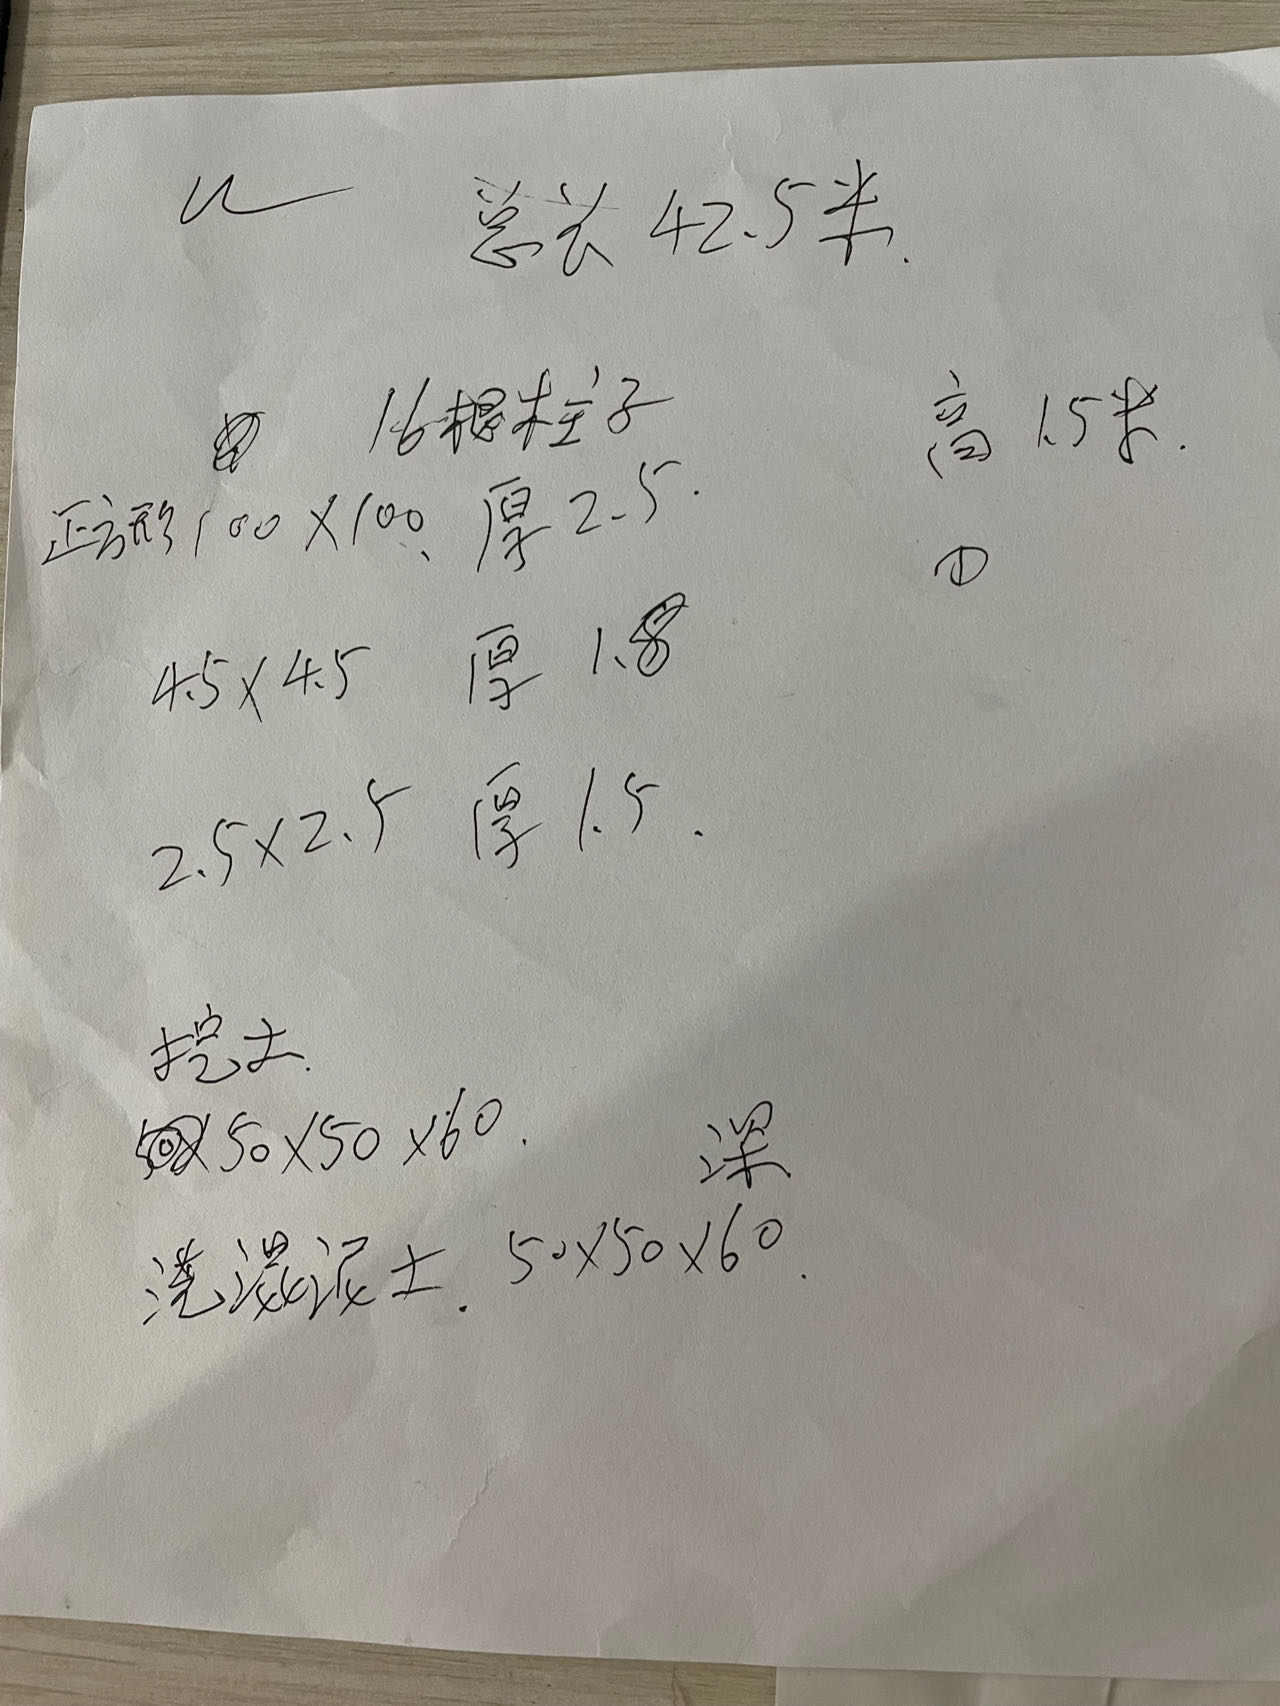 总长 42.5米.
16根柱子 高 1.5米.
正方形100X100、厚2.5.
①
4.5X4.5 厚 1.8
2.5X2.5 厚 1.5.
挖土.
50X50X60.
深
浇混泥土. 50X50X60.